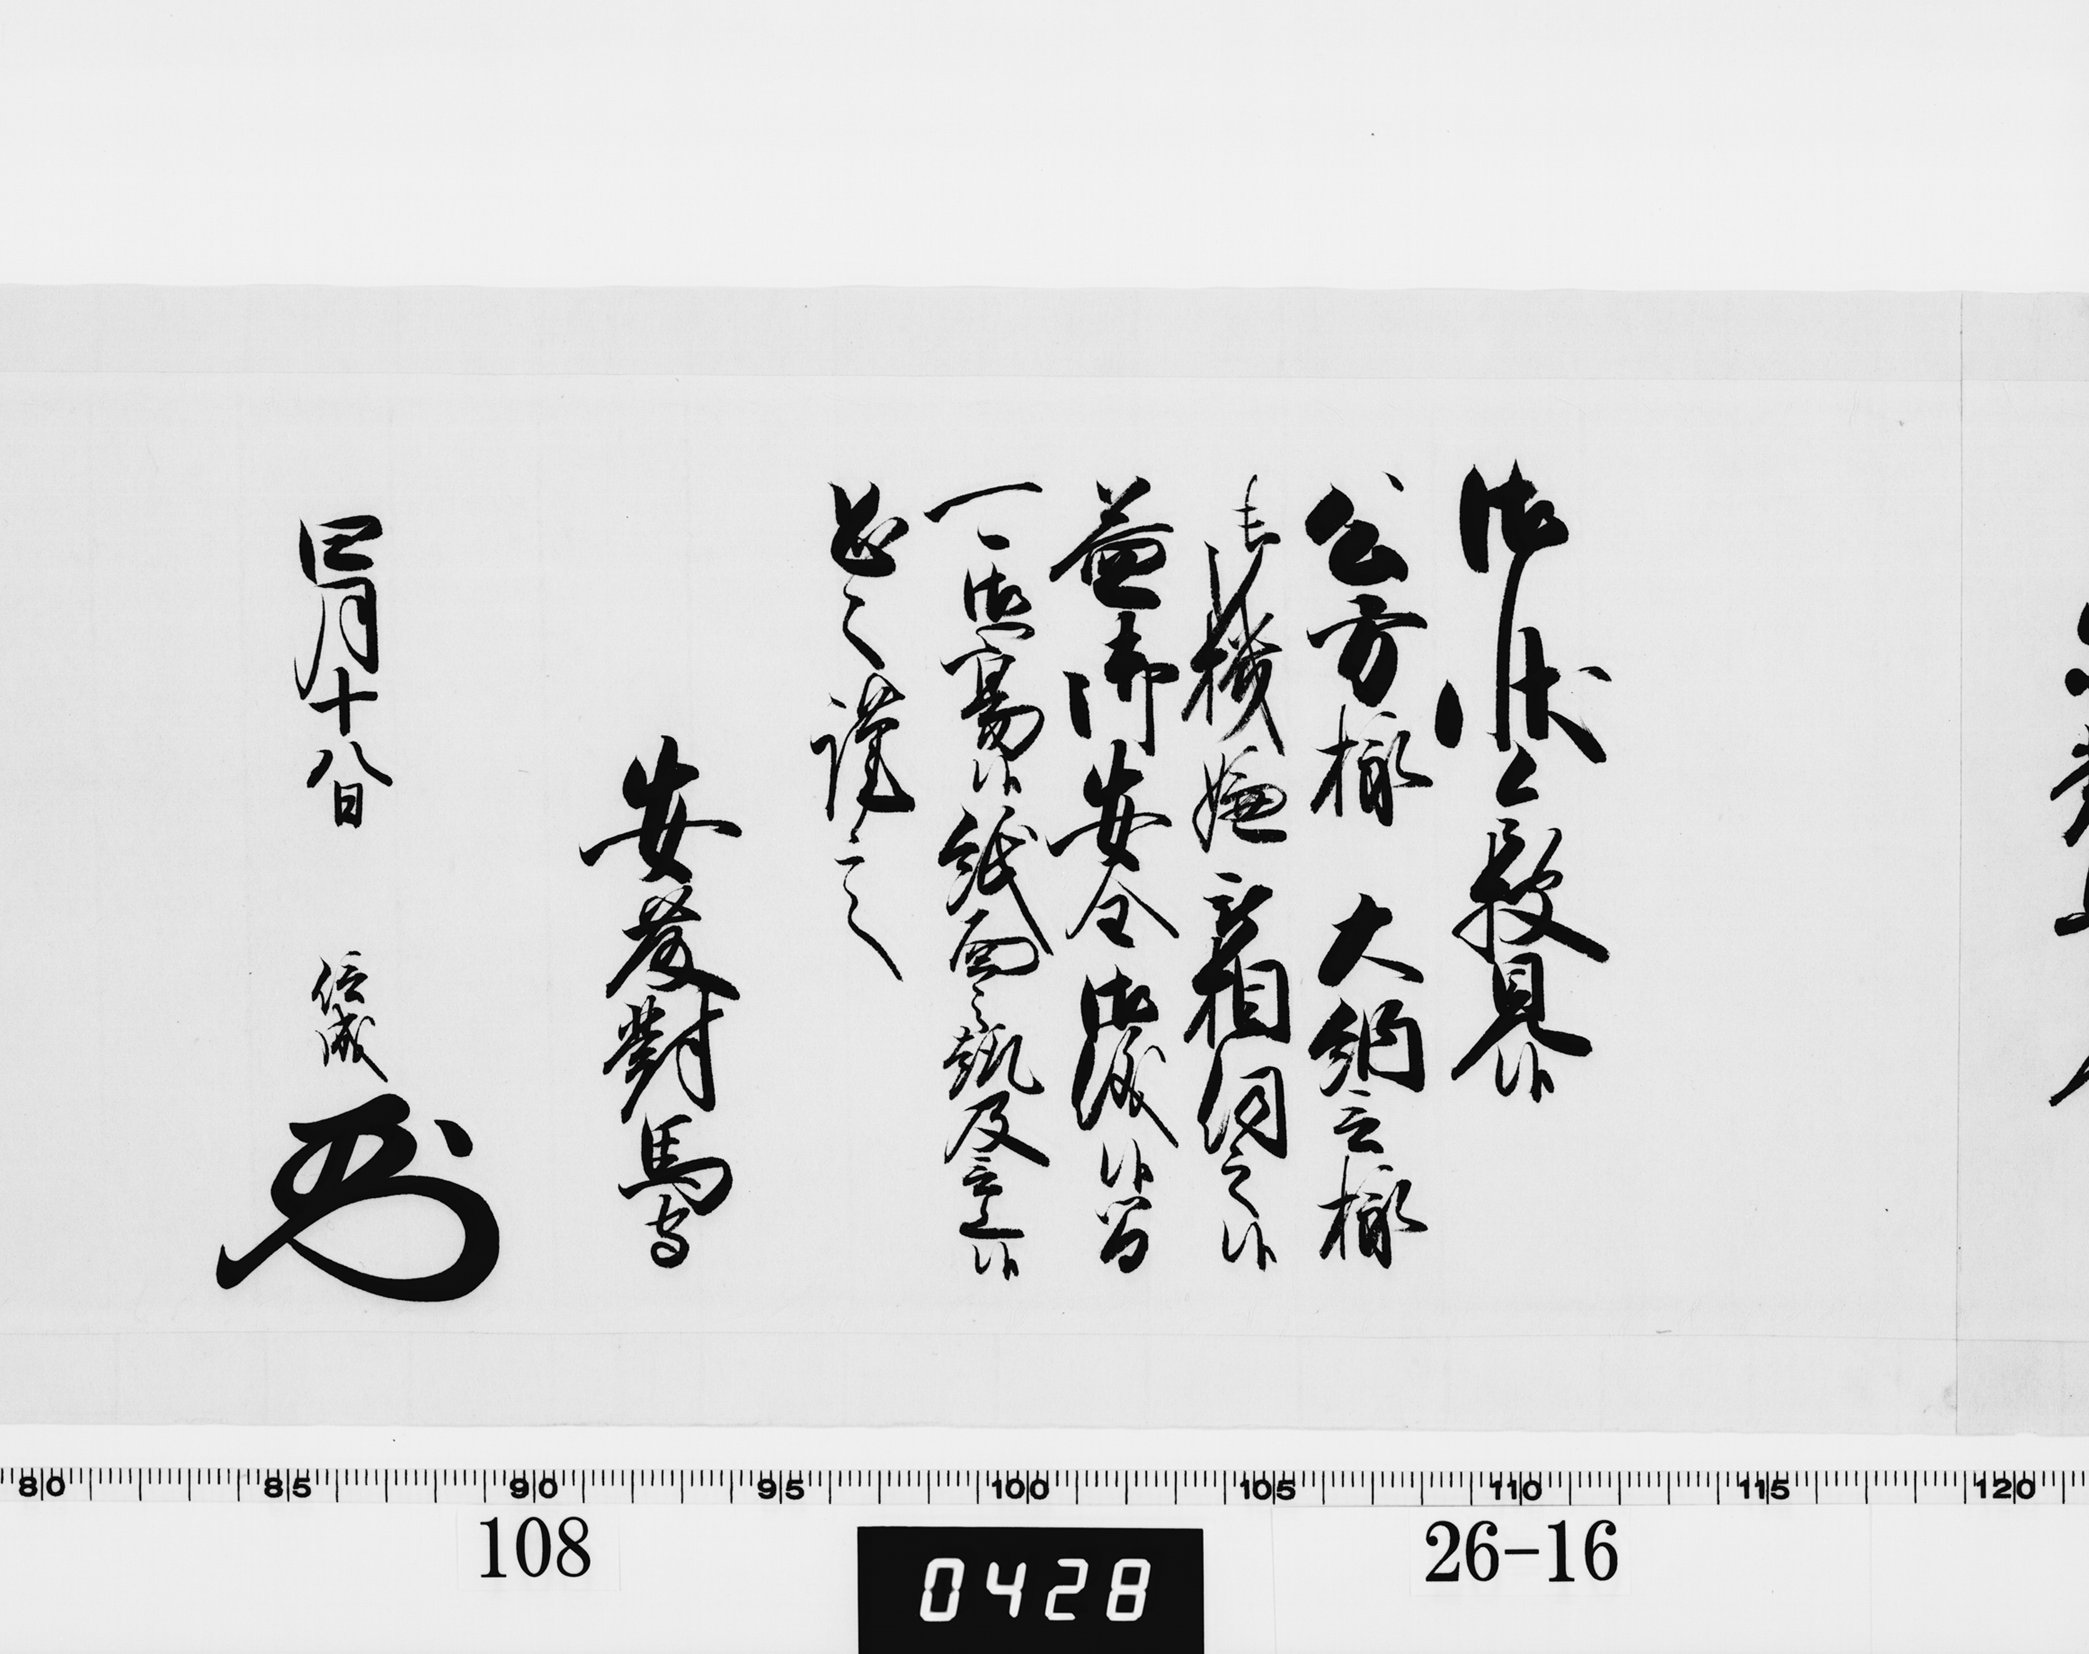 御状令披見候
公方様 大納言様
御機嫌 被相伺之候
益御安全御儀候間
可御心易候紙面之趣及言上候
恐々謹言
安藤對馬守
四月十八日 信成
80 85 90 95 100 105 110 115 120
108
0428
26-16